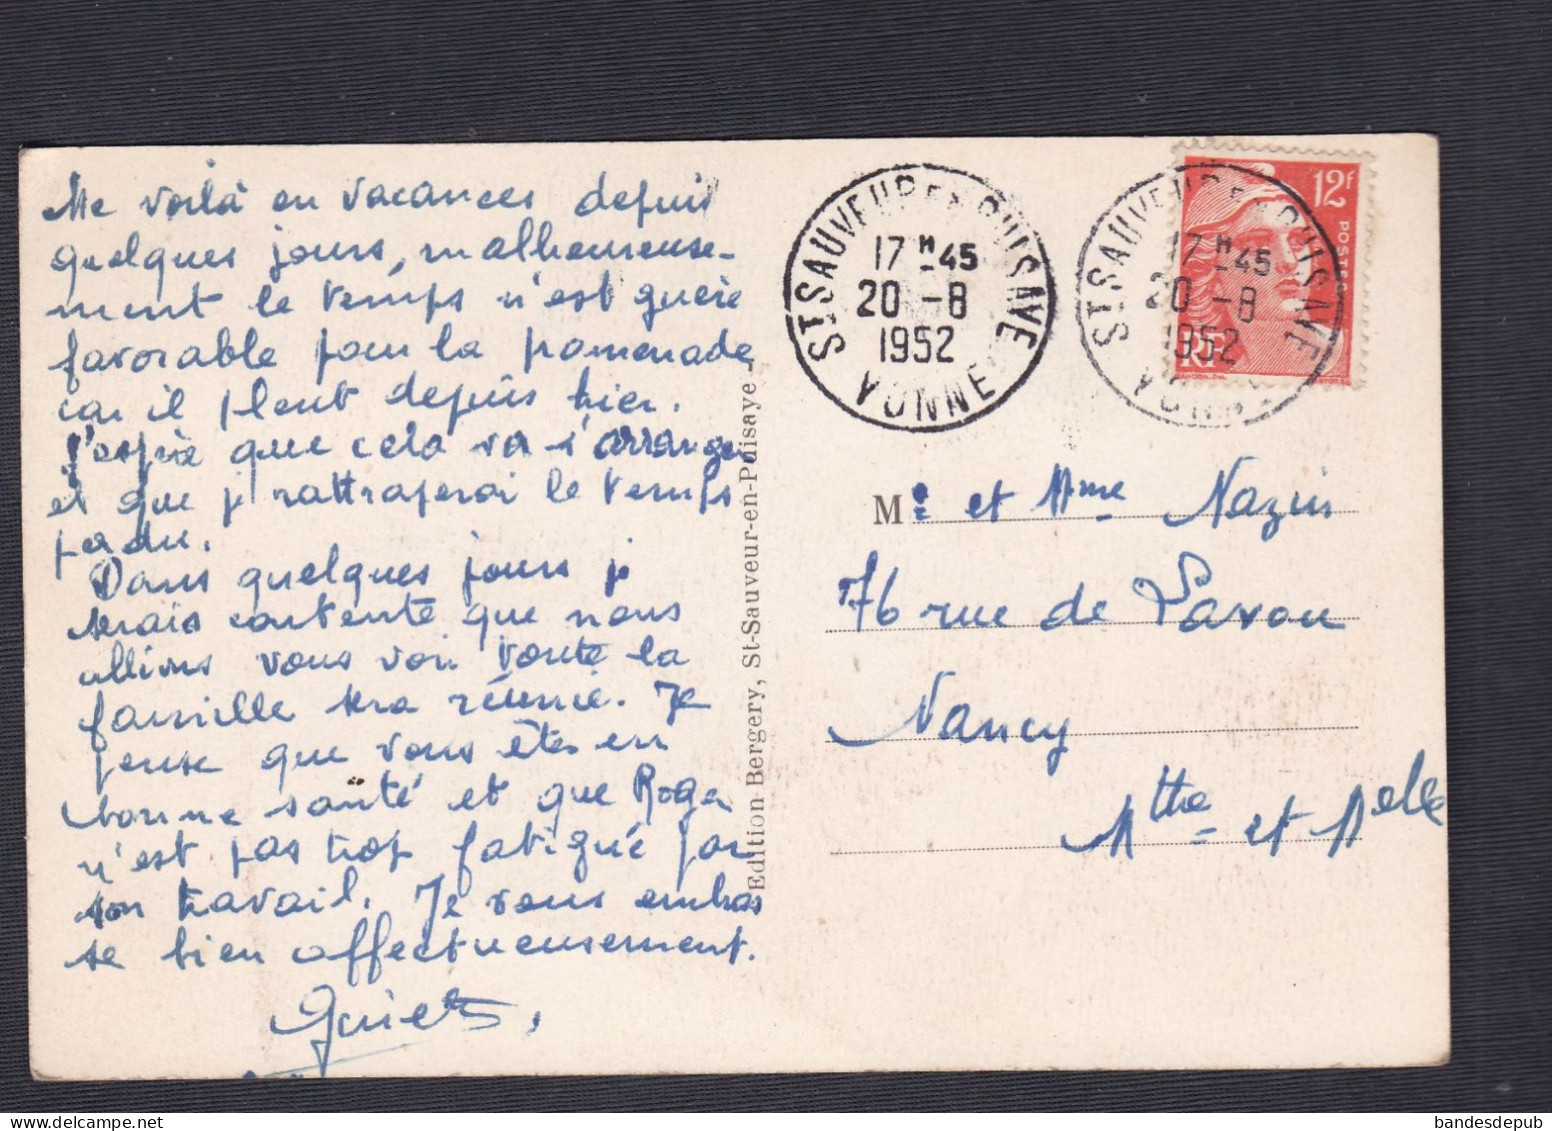 Me voilà en vacances depuis
quelques jours, malheureuse-
ment le temps n'est guère
favorable pour la promenade
car il pleut depuis hier.
J'espère que cela va s'arranger
et que je rattraperai le temps
perdu.
Dans quelques jours je
serais contente que nous
allions vous voir toute la
famille sera réunie. Je
pense que vous êtes en
bonne santé et que Roger
n'est pas trop fatigué par
son travail. Je vous embras
se bien affectueusement.
Edition Bergery, St-Sauveur-en-Puisaye
ST SAUVEUR EN PUISAYE
17H45
20 -8
1952
YONNE
ST SAUVEUR EN PUISAYE
17H45
20 -8
1952
YONNE
12F
POSTES
RF
Mr et Mme Nazin
76 rue de Lavou
Nancy
Mthe et Melle
bandesdepub